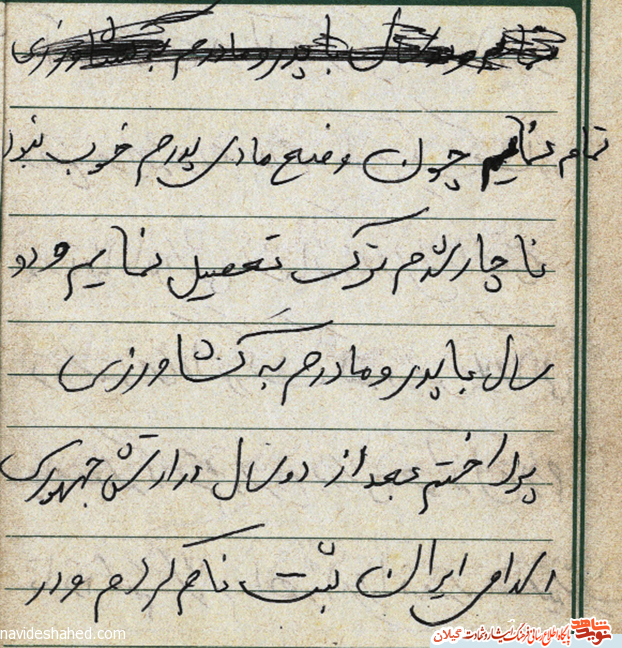 با پدر و مادرم به کشاورزی
تمام نمایم چون وضع مادی پدرم خوب نبود
ناچار شدم ترک تحصیل نمایم و دو
سال با پدر و مادرم به کشاورزی
پرداختم بعد از دو سال در ارتش جمهوری
اسلامی ایران ثبت نام کردم و در
navideshahed.com
نوید شاهد پایگاه اطلاع رسانی فرهنگ ایثار و شهادت گیلان